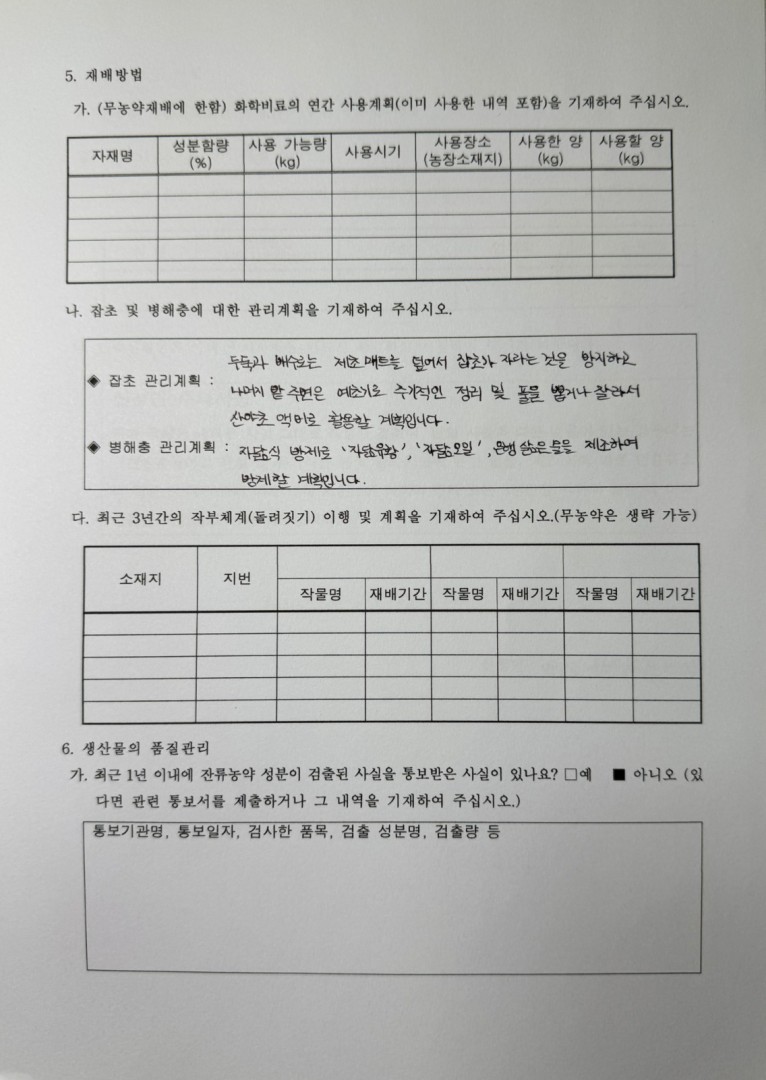 5. 재배방법
가. (무농약재배에 한함) 화학비료의 연간 사용계획(이미 사용한 내역 포함)을 기재하여 주십시오.
자재명 성분함량 (%) 사용 가능량 (kg) 사용시기 사용장소 (농장소재지) 사용한 양 (kg) 사용할 양 (kg)
나. 잡초 및 병해충에 대한 관리계획을 기재하여 주십시오.
◈ 잡초 관리계획 : 두둑과 배수로는 제초매트를 덮어서 잡초가 자라는 것을 방지하고
나머지 밭 주변은 예초기로 주기적인 정리 및 풀을 뽑거나 잘라서
산야초 액비로 활용할 계획입니다.
◈ 병해충 관리계획 : 자닮식 방제로 '자닮유황', '자닮오일', 은행 삶은 물을 제조하여
방제할 계획입니다.
다. 최근 3년간의 작부체계(돌려짓기) 이행 및 계획을 기재하여 주십시오.(무농약은 생략 가능)
소재지 지번
작물명 재배기간 작물명 재배기간 작물명 재배기간
6. 생산물의 품질관리
가. 최근 1년 이내에 잔류농약 성분이 검출된 사실을 통보받은 사실이 있나요? □예 ■ 아니오 (있
다면 관련 통보서를 제출하거나 그 내역을 기재하여 주십시오.)
통보기관명, 통보일자, 검사한 품목, 검출 성분명, 검출량 등